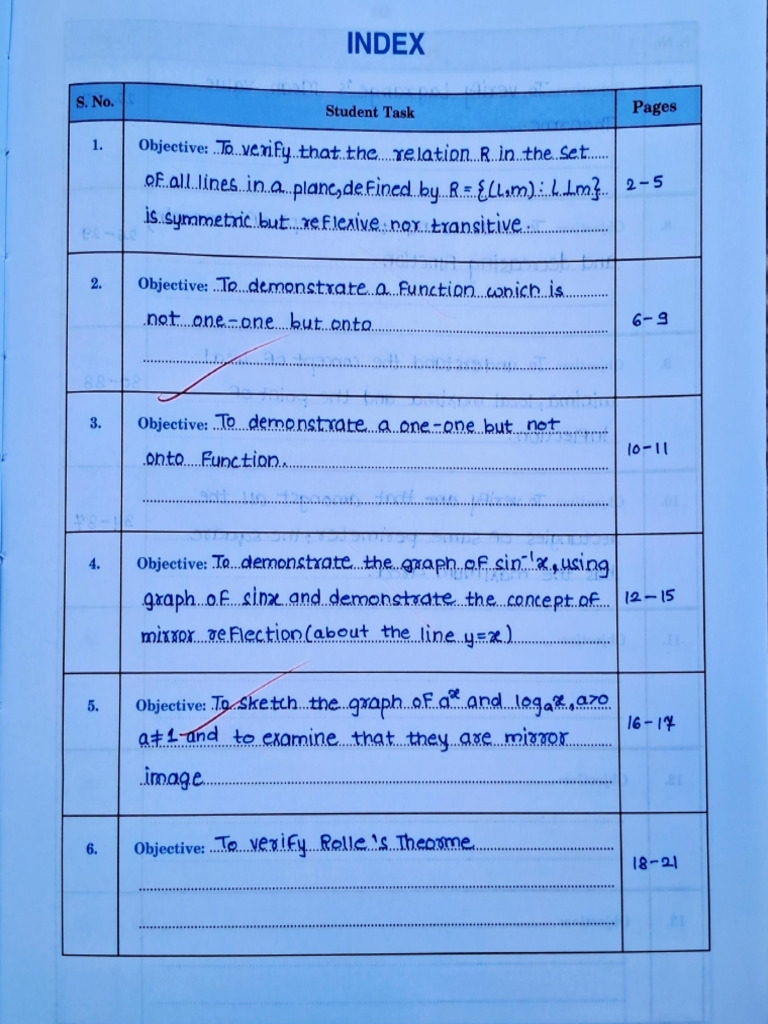 INDEX
S. No. Student Task Pages
1. Objective: To verify that the relation R in the set
of all lines in a plane, defined by R = {(l,m) : l ⊥ m}
is symmetric but reflexive nor transitive.
2-5
2. Objective: To demonstrate a function which is
not one-one but onto
6-9
3. Objective: To demonstrate a one-one but not
onto function.
10-11
4. Objective: To demonstrate the graph of sin⁻¹x, using
graph of sinx and demonstrate the concept of
mirror reflection (about the line y=x)
12-15
5. Objective: To sketch the graph of aˣ and logₐx, a>0
a≠1 and to examine that they are mirror
image
16-17
6. Objective: To verify Rolle's Theorme
18-21